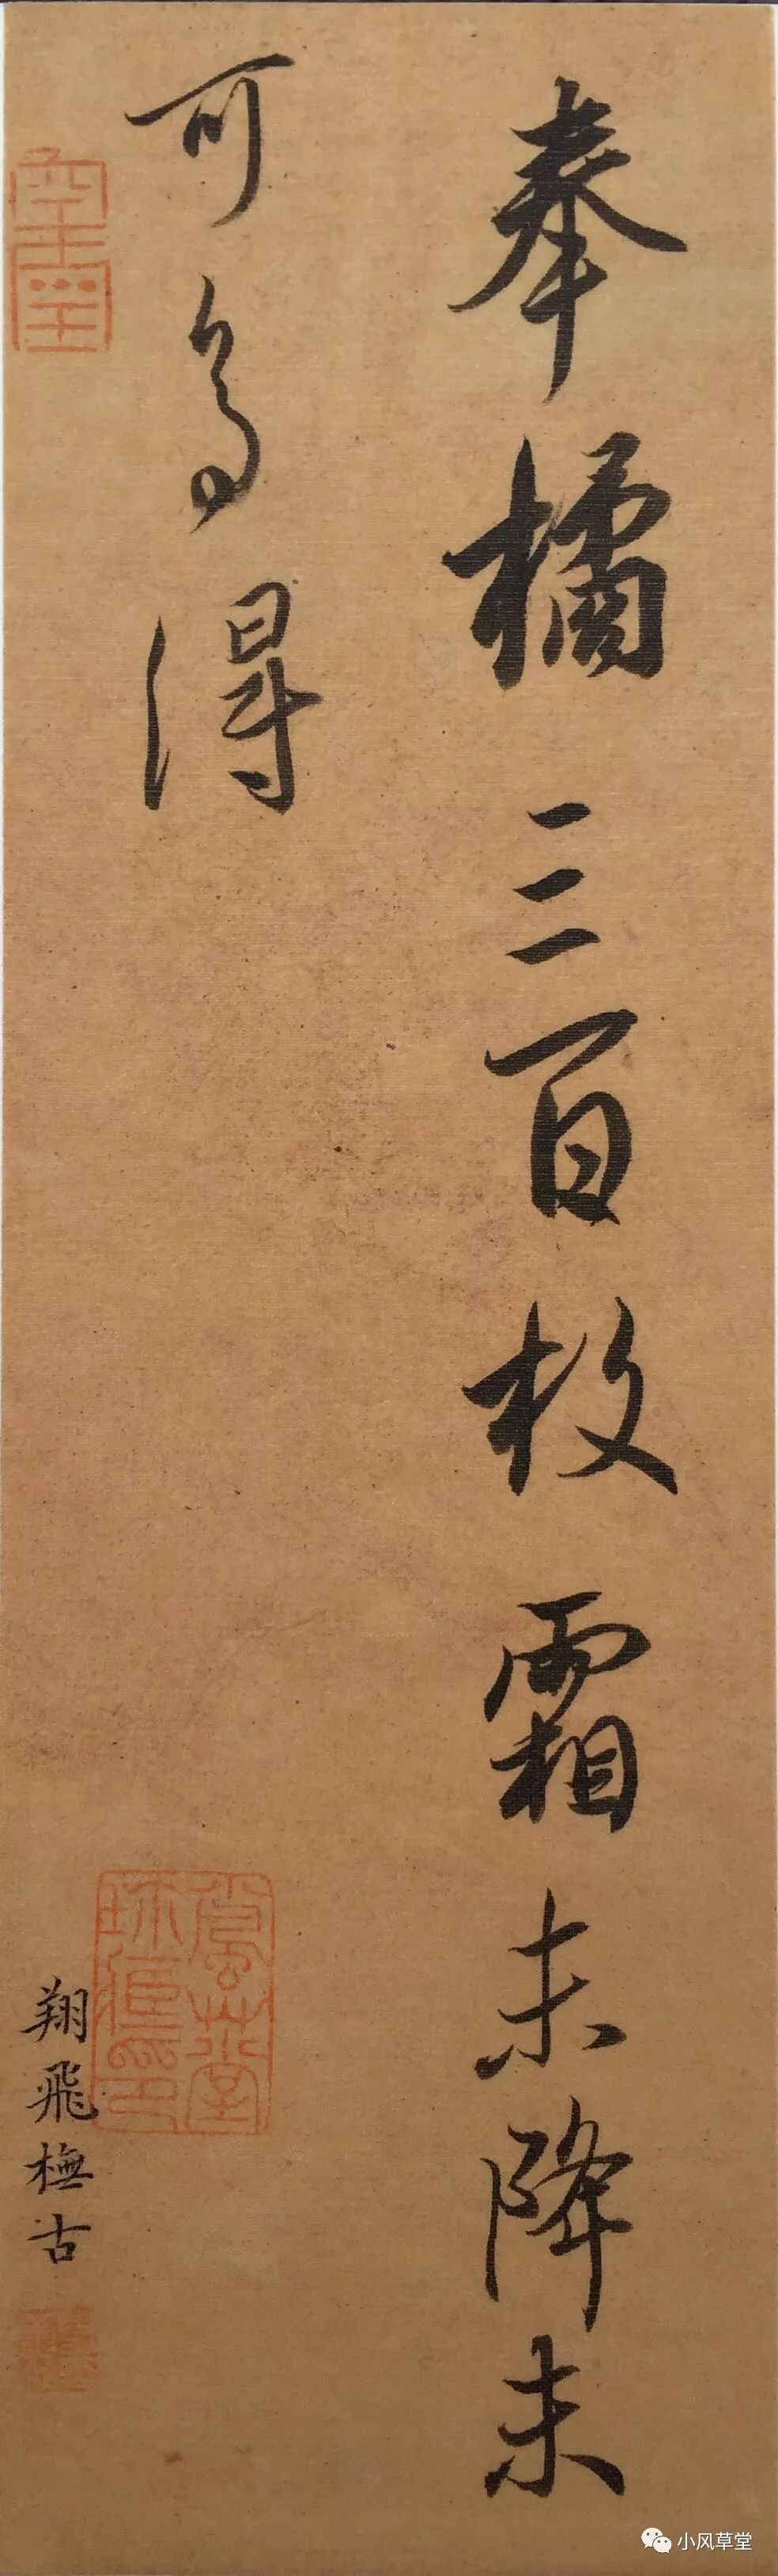 奉橘三百枚霜未降未
可多得
翔飛橅古
小风草堂